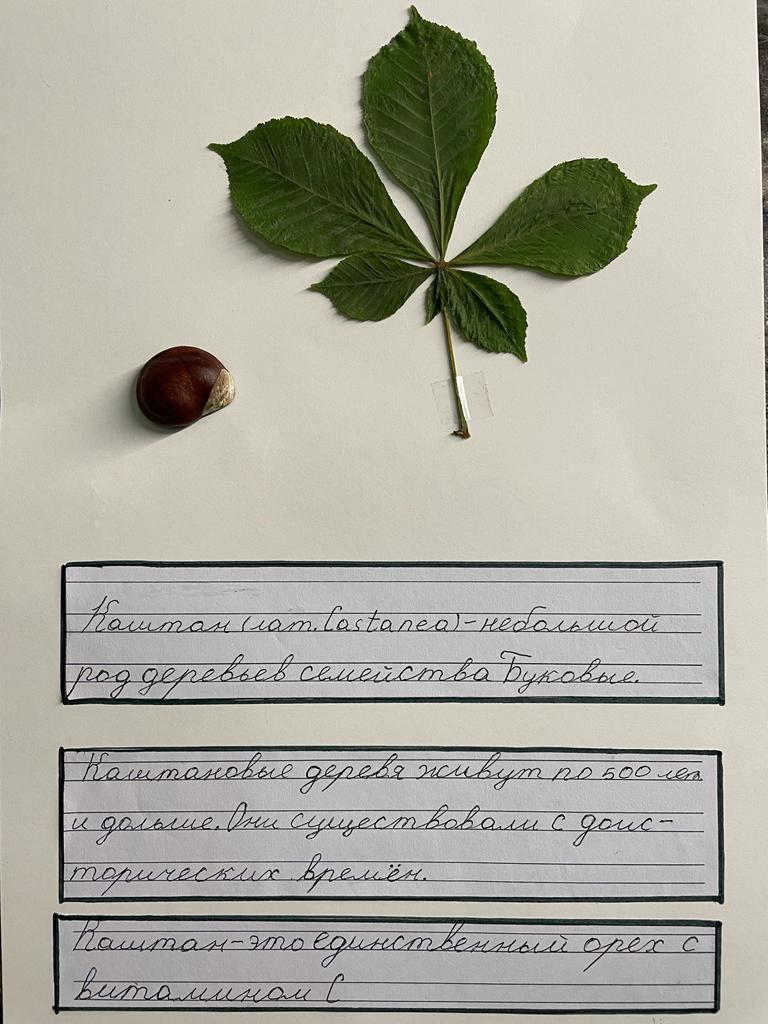 Каштан (лат. Castanea) - небольшой
род деревьев семейства Буковые.
Каштановые деревя живут по 500 лет
и дольше. Они существовали с доис-
торических времён.
Каштан - это единственный орех с
витамином С